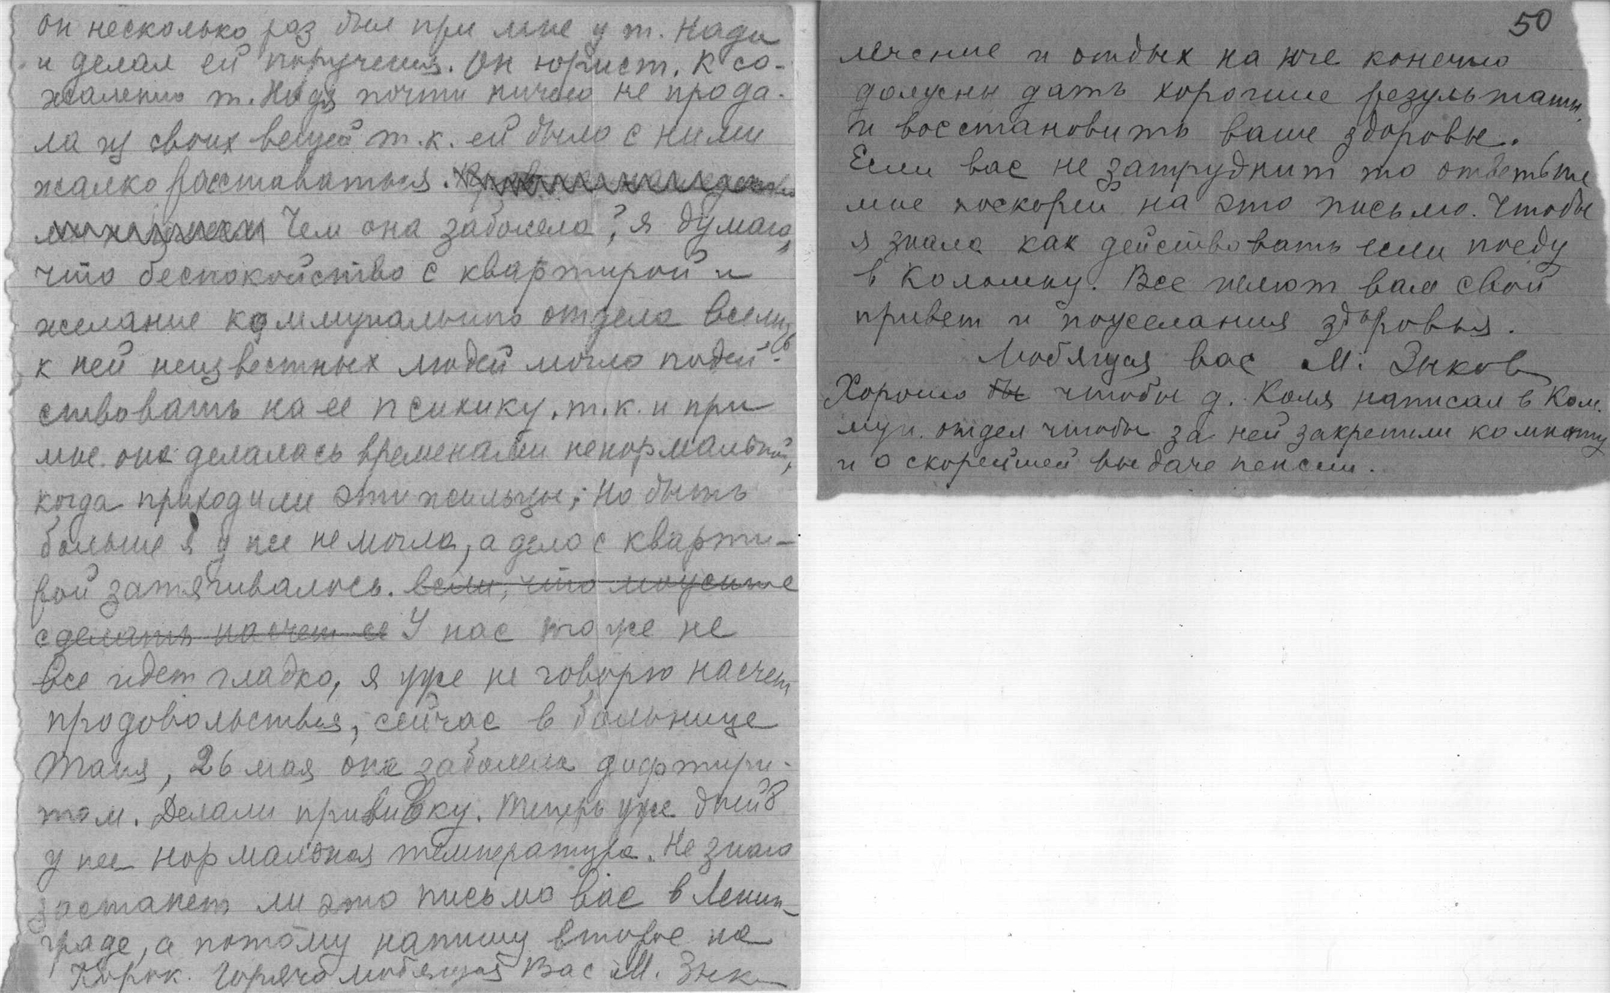 он несколько раз был при мне у т. Нади
и делал ей поручения. Он юрист. К со-
жалению т. Надя почти ничего не прода-
ла из своих вещей т.к. ей было с ними
жалко расставаться.
Чем она заболела? я думаю,
что беспокойство с квартирой и
желание коммунального отдела вселить
к ней неизвестных людей могло подей-
ствовать на ее психику, т.к. и при
мне она делалась временами ненормальной,
когда приходили эти жильцы; но быть
больше я у нее не могла, а дело с кварти-
рой затягивалось. если, что можите
сделать насчет ее У нас тоже не
все идет гладко, я уже не говорю насчет
продовольствья, сейчас в больнице
Таня, 26 мая она заболела дифтири-
том. Делали прививку. Теперь уже дней 8
у нее нормальная температура. Не знаю
застанет ли это письмо вас в Ленин-
граде, а потому напишу второе на
Горячо любящая Вас М.
50
лечение и отдых на юге конечно
должны дать хорошие результаты
и восстановить ваше здоровье.
Если вас не затруднит то ответьте
мне поскорей на это письмо. Чтобы
я знала как действовать если поеду
в Коломну. Все шлют вам свой
привет и пожелания здоровья.
Любящая вас М.
Хорошо бы чтобы д. Коля написал в Ком.
мун. отдел чтобы за ней закрепили комнату
и о скорейшей выдаче пенсии.